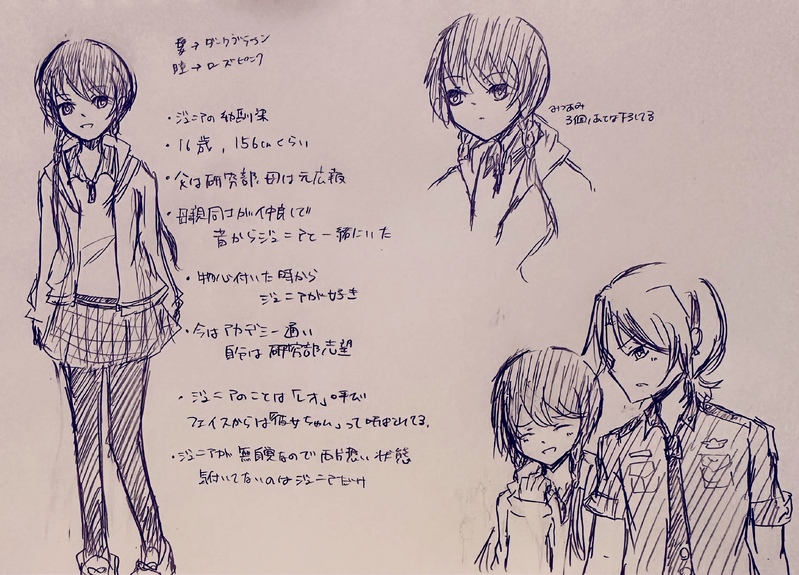 髪→ダークブラウン
瞳→ローズピンク
・ジュニアの幼馴染
・16歳, 156cmくらい
・父は研究部、母は元広報
・母親同士が仲良しで
昔からジュニアと一緒にいた
・物心付いた時から
ジュニアが好き
・今はアカデミー通い
自分は研究部志望
・ジュニアのことは「レオ」呼び
フェイスからは「彼女ちゃん」って呼ばれてる。
・ジュニアが無自覚なので両片想い状態
気付いてないのはジュニアだけ
みつあみ
3個あとは下ろしてる